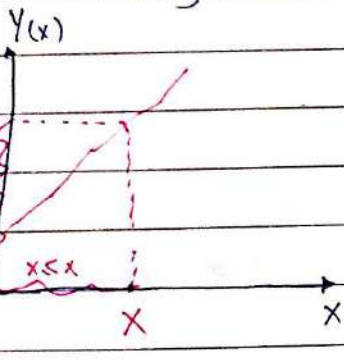 Y(x)
x ≤ x
X
X